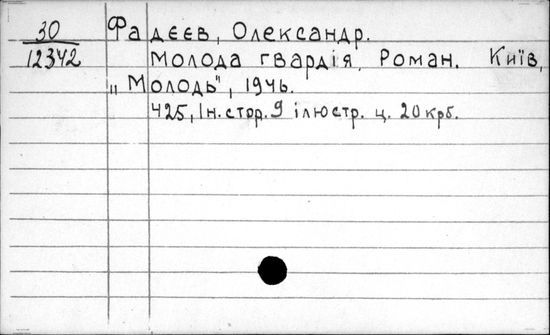 30 Фадєєв, Олександр.
12342 Молода гвардія. Роман. Київ,
„Молодь", 1946.
425, Ін. стор. 9 ілюстр. ц. 20 крб.